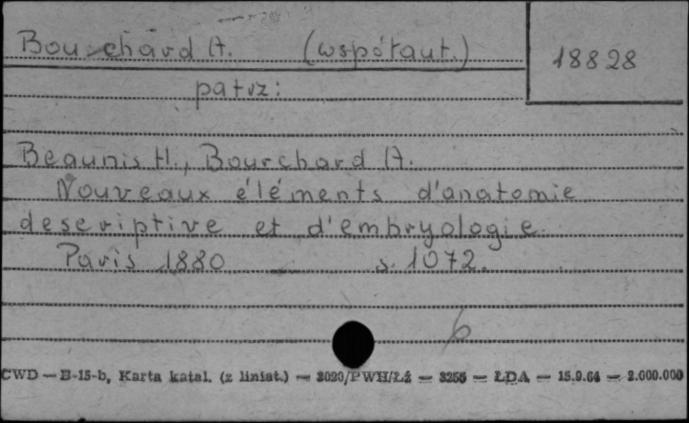 Bouchard A. (współaut.)
18828
patrz:
Beaunis H., Bourchard A.
Nouveaux éléments d'anatomie
descriptive et d'embryologie
Paris 1880 s. 1072.
6
CWD — B-15-b, Karta katal. (z liniat.) — 3020/PWH/Łż — 3256 — ŁDA — 15.9.64 — 2.000.000